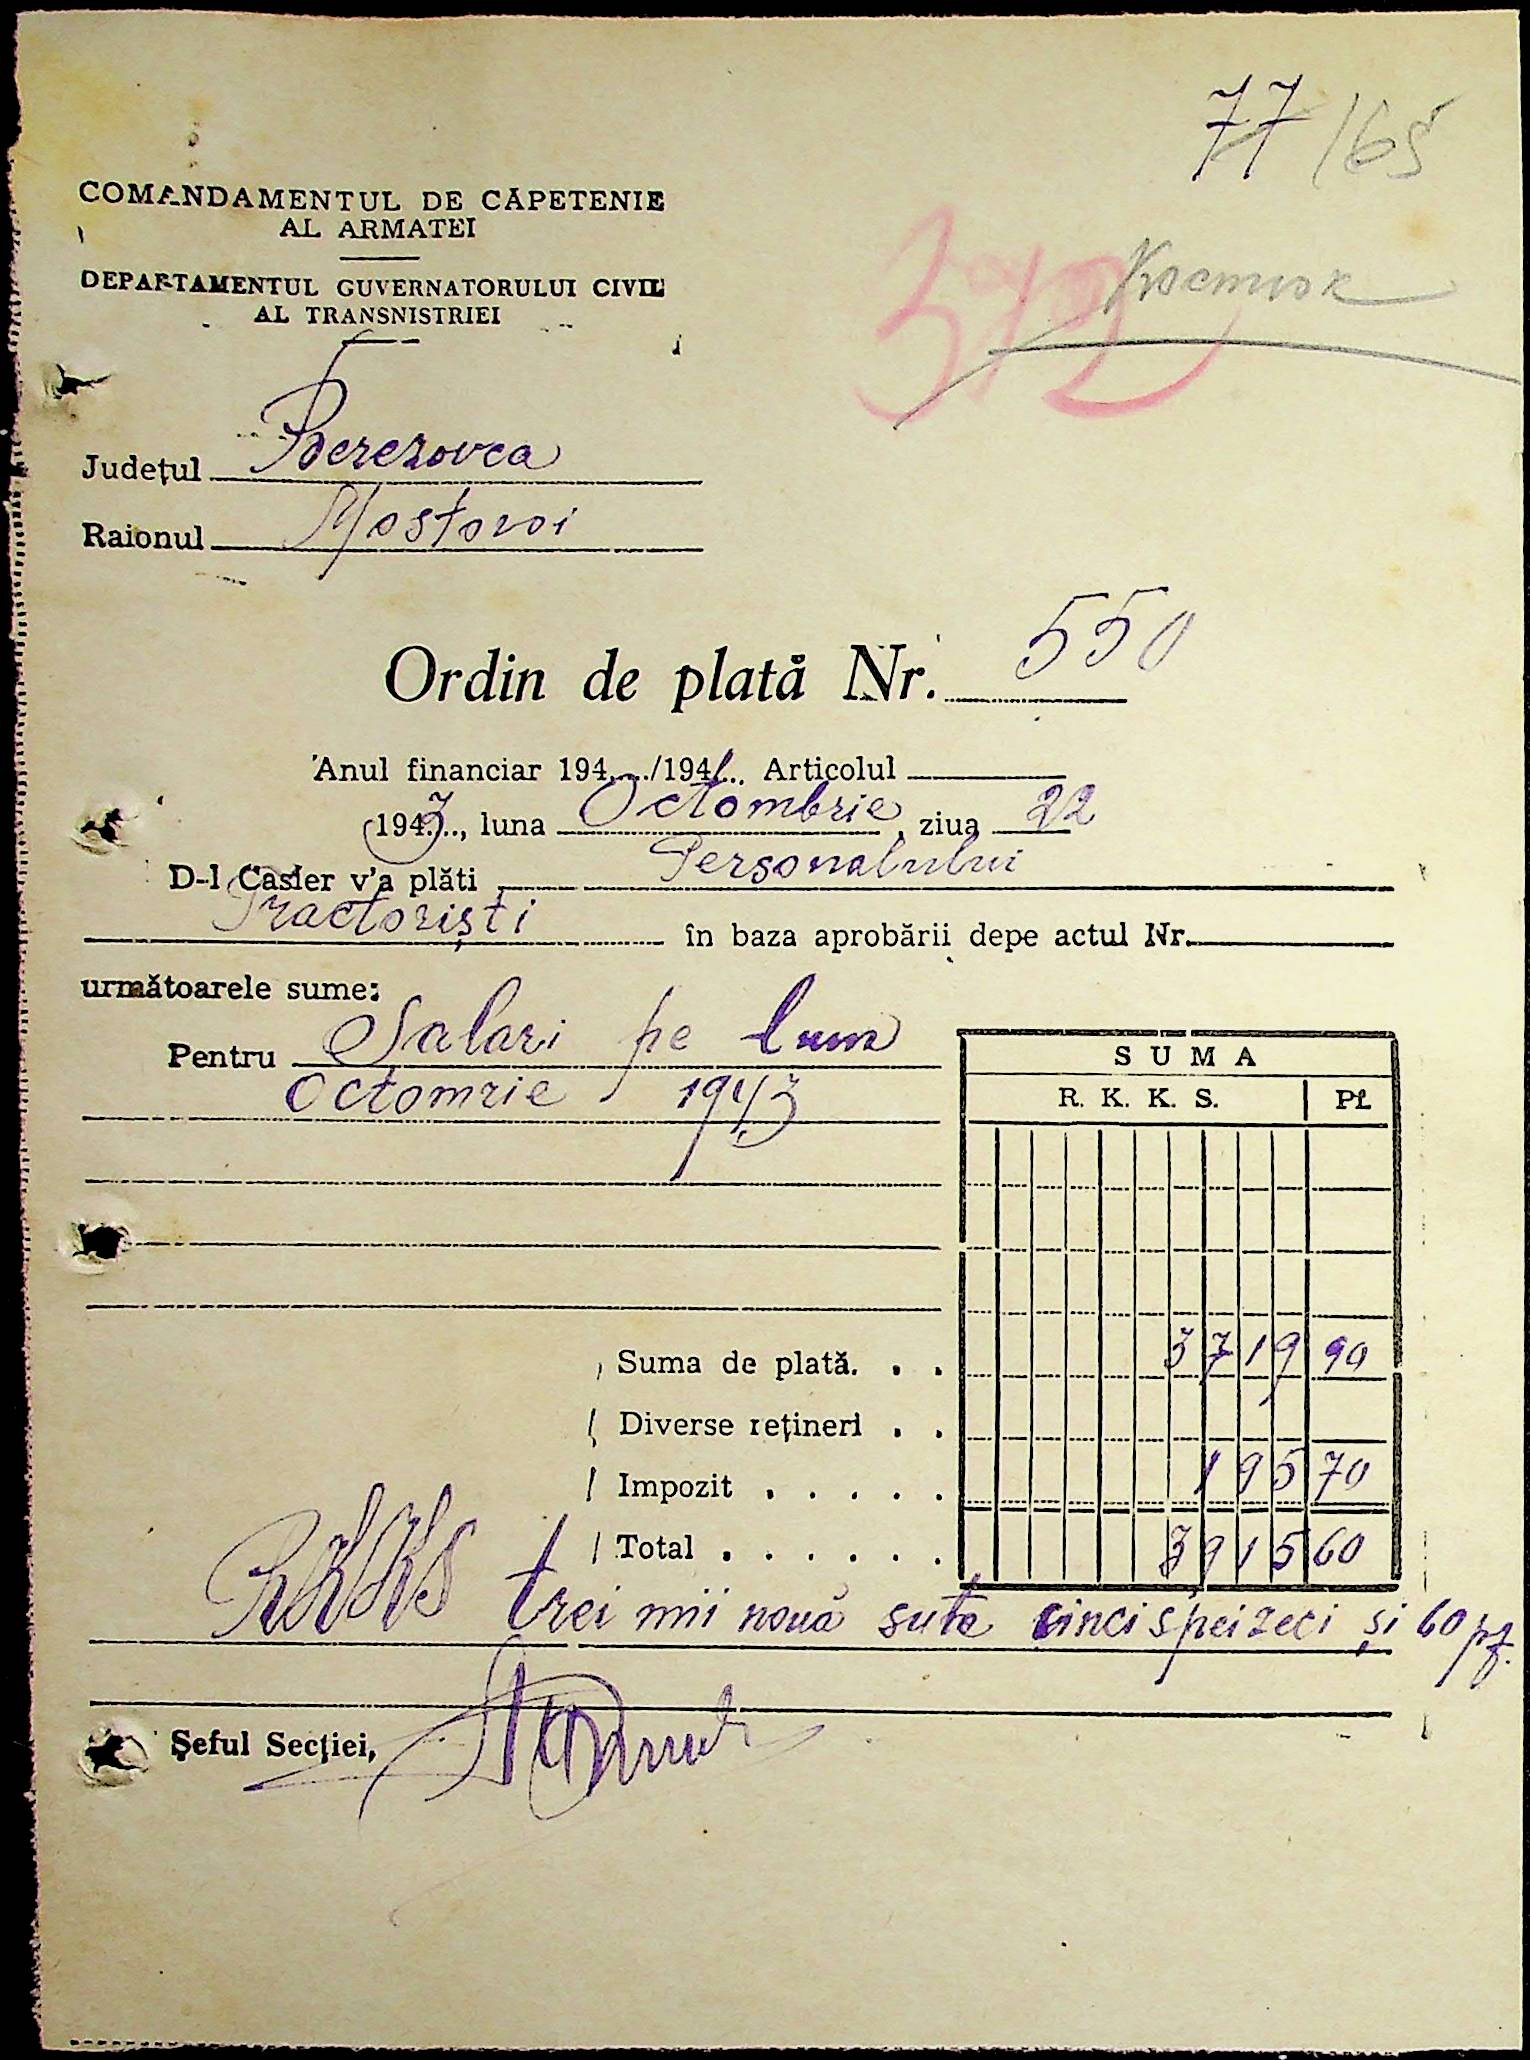 77 /65
COMANDAMENTUL DE CĂPETENIE
AL ARMATEI
DEPARTAMENTUL GUVERNATORULUI CIVIL
AL TRANSNISTRIEI
Județul Berezovca
Raionul Mostovoi
Ordin de plată Nr. 550
Anul financiar 194..../194... Articolul
1943..., luna Octombrie, ziua 22
D-l Casier v'a plăti Personalului
Tractoriști în baza aprobării depe actul Nr.
următoarele sume:
Pentru Salari pe luna
Octomrie 1943
SUMA
R. K. K. S. Pf.
Suma de plată. . . 3719 90
Diverse rețineri . .
Impozit . . . . . 195 70
Total . . . . . . 3915 60
RKKS trei mii nouă sute cincispeizeci și 60 pf.
Șeful Secției,